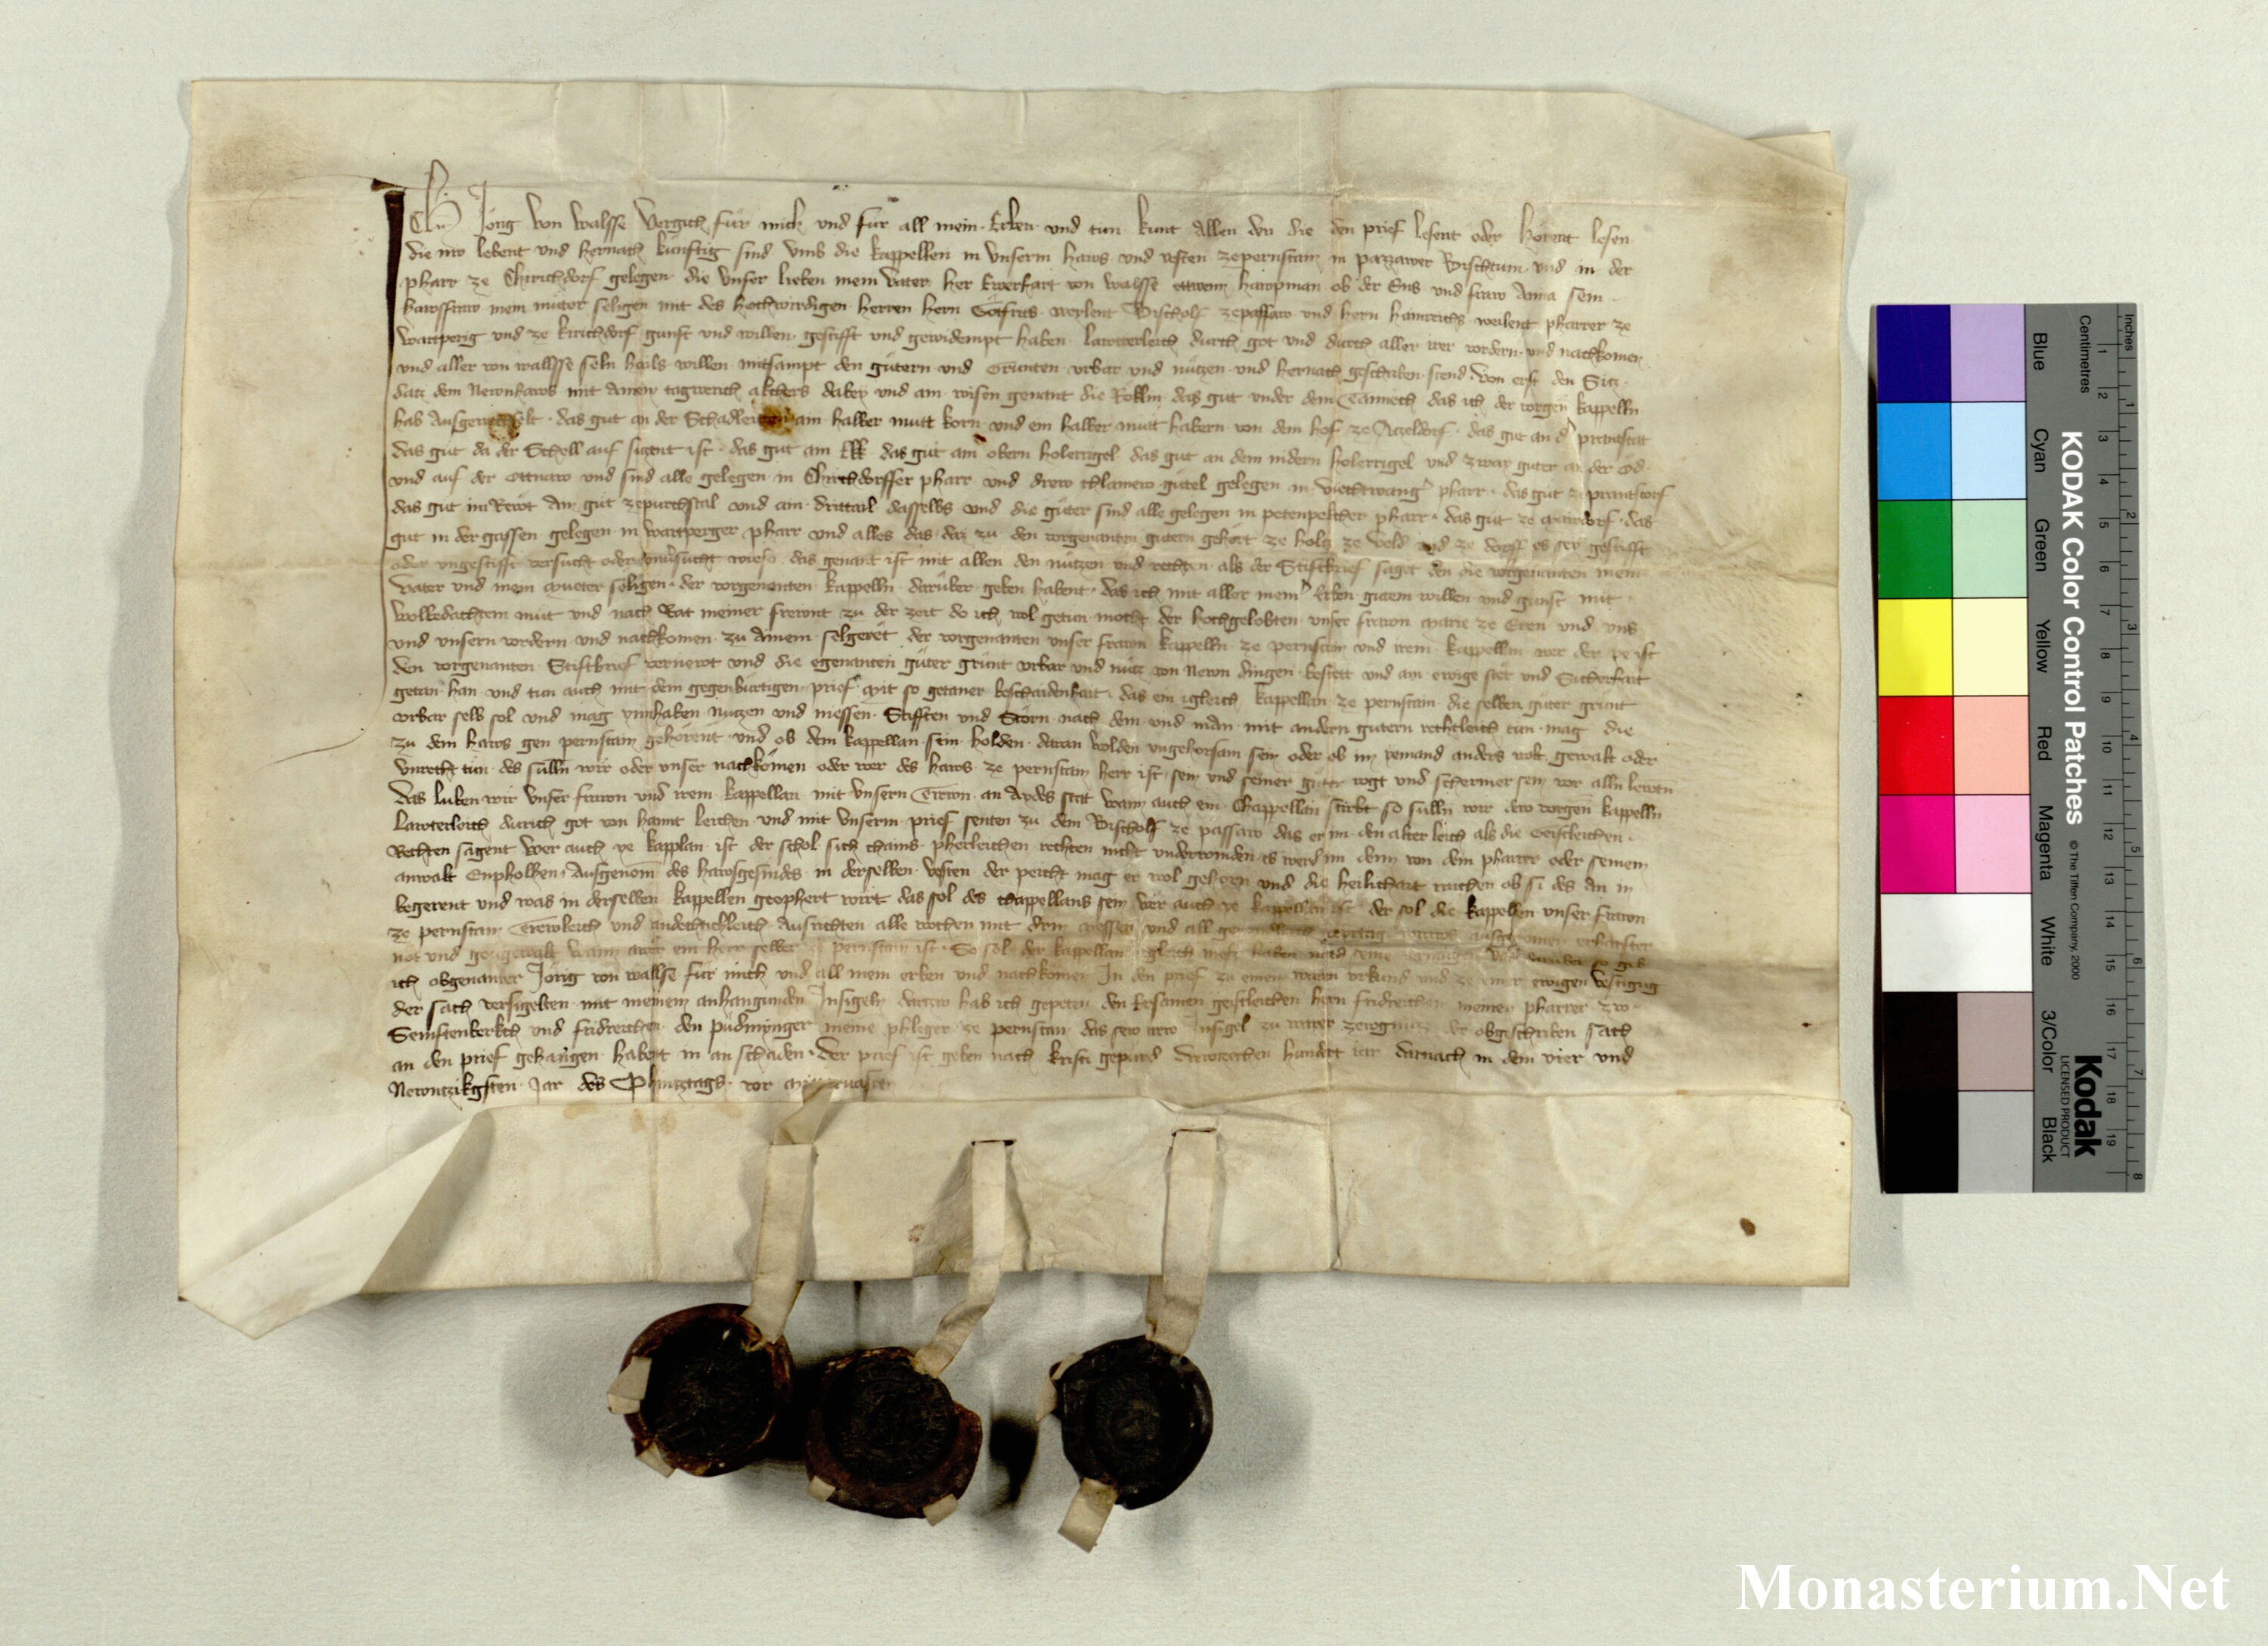 Ich Jörg von Walsse Vergich für mich und für all mein Erben und tun kunt Allen den die den prief lesent oder hörent lesen
die nw lebent und hernach künftig sind umb die kappellen in unserm haws und vesten zepernstain in pazzawer Bischtum und in der
pharr ze Chirichdorf gelegen die unser lieben mein vater her Ewerhart von Walsse ettwenn hawpman ob der Ens und fraw Anna sein
hawsfraw mein müter seligen mit des hochwirdigen herren hern Götfrits weylent Bischolf zepassaw und hern hainreichs weilent pharrer ze
wartperig und ze kirichdorf gunst und willen gestifft und gewidempt haben lawterleich durch got und durch aller irer vordern und nachkomen
und aller von wallsse seln hails willen mitsampt den gütern und Grünten urbar und nützen und hernach geschriben stend von erst den Sitz
datz dem Newnhaws mit Ainem tagwerich akchers dabey und ain wisen genant die Röklin das gut under dem Tannech das ich der vorgen kappelln
hab Ausgewechselt das gut an der Schadleitten ain halber mutt korn und ein halber mutt habern von dem hof ze Atzeldorf das gut an der prantstat
das gut da der Scholl auf sitzent ist das gut am das gut am obern holerrigel das gut an dem nidern holerrigel und zway güter an der Öd
und auf der Ottnaw und sind alle gelegen in Chirchdorffer pharr und drew chlainew gütel gelegen in viechtwanger pharr das gut zeprantstorf
das gut im Rewt Ain gut zepurchstal und ain drittail dasselbs und die güter sind alle gelegen in petenpekcher pharr das gut ze mairdorf das
gut in der gassen gelegen in wartperger pharr und alles das daz zu den vorgenanten gütern gehört ze holz ze veld und ze dorff es sey gestifft
oder ungestifft versucht oder unversucht wie das genant ist mit allen den nützen und rechten als der Stiftbrief saget den die vorgenanten mein
vater und mein mueter seligen der vorgenenten kappelln darüber geben habent das ich mit aller meiner Erben gutem willen und gunst mit
wolbedachtem müt und nach Rat meiner frewnt zu der zeit do ich wol getun mocht der hochgelobten unser frawn Marie ze Eren und uns
und unsern vordern und nachkomen zu Ainem selgerët der vorgenanten unser frawn kappelln ze pernstain und irem kappellan wer der ye ist
den vorgenanten Stiftbrief vernewt und die egenanten güter grünt urbar und nütz von Newn dingen bestett und ain ewige stët und Sicherhait
getan han und tun auch mit dem gegenbürtigen prief mit so getaner beschaidenhait das ein igleich kappellan ze pernstain die selben güter grünt
urbar selb sol und mag innhaben nutzen und niessen Stifften und Störn nach dem und man mit andern gütern rechtleich tün mag die
zu dem haws gen pernstain gehörent und ob dem kappellan sein holden daran wolden ungehorsam sein oder ob im yemand anders wolt gewalt oder
unrecht tün des sülln wir oder unser nachkömen oder wer des haws ze pernstain herr ist sein und seiner güter vogt und schermer sein vor alln lewten
das luben wir unser frawn und irem kappellan mit unsern Trewn an Aydes stat wann auch ein Chappellan stirbt so sülln wir dew vorgen kappelln
lawterleich durich got von hannt leichen und mit unserm prief senten zu dem Bischolf ze passaw das er im den alter leich als die Geistleichen
Rechten sagent wer auch ye kapplan ist der schol sich chains pherleichen rechten nicht underwinden es werd im denn von dem pharrer oder seinem
anwalt Enpholhen Ausgenom des hawsgesindes in derselben vesten der peicht mag er wol gehörn und die heilichait raichen ob si des An in
begerent und was in derselben kappellen geophert wirt das sol des chappellans sein wer auch ye kappellan ist der sol die kappellen unser frawn
ze pernstain Trewleich und andechichleich Ausrichten alle wochen mit drin messen und all
not und wann awer ein herr selber ze pernstain ist So sol der kappellan igleich mess haben
ich obgenanter Jörig von wallse für mich und all mein erben und nachkomen In den prief zu einem waren urkund und ze einer ewigen vestigung
der sach versigelten mit meinem anhangunden Insigeln darzw hab ich gepeten den Ersamen geistleichen hern fridreichen meinen pharrer zw
Senftenberkch und fridreichen den püdmynger meine phleger ze pernstain das sew irew Insigel zu einer zewgnuzz der obgeschriben sach
an den prief gehangen habent in an schaden der prief ist geben nach kristi gepürd drewzechen hundert iar darnach in dem vier und
Newntzikgsten Jar des Phintztags vor
Inches
Centimetres
KODAK Color Control Patches © The Tiffen Company, 2000
Kodak
LICENSED PRODUCT
Blue Cyan Green Yellow Red Magenta White 3/Color Black
1 2 3 4 5 6 7 8 9 10 11 12 13 14 15 16 17 18 19
1 2 3 4 5 6 7 8
Monasterium.Net